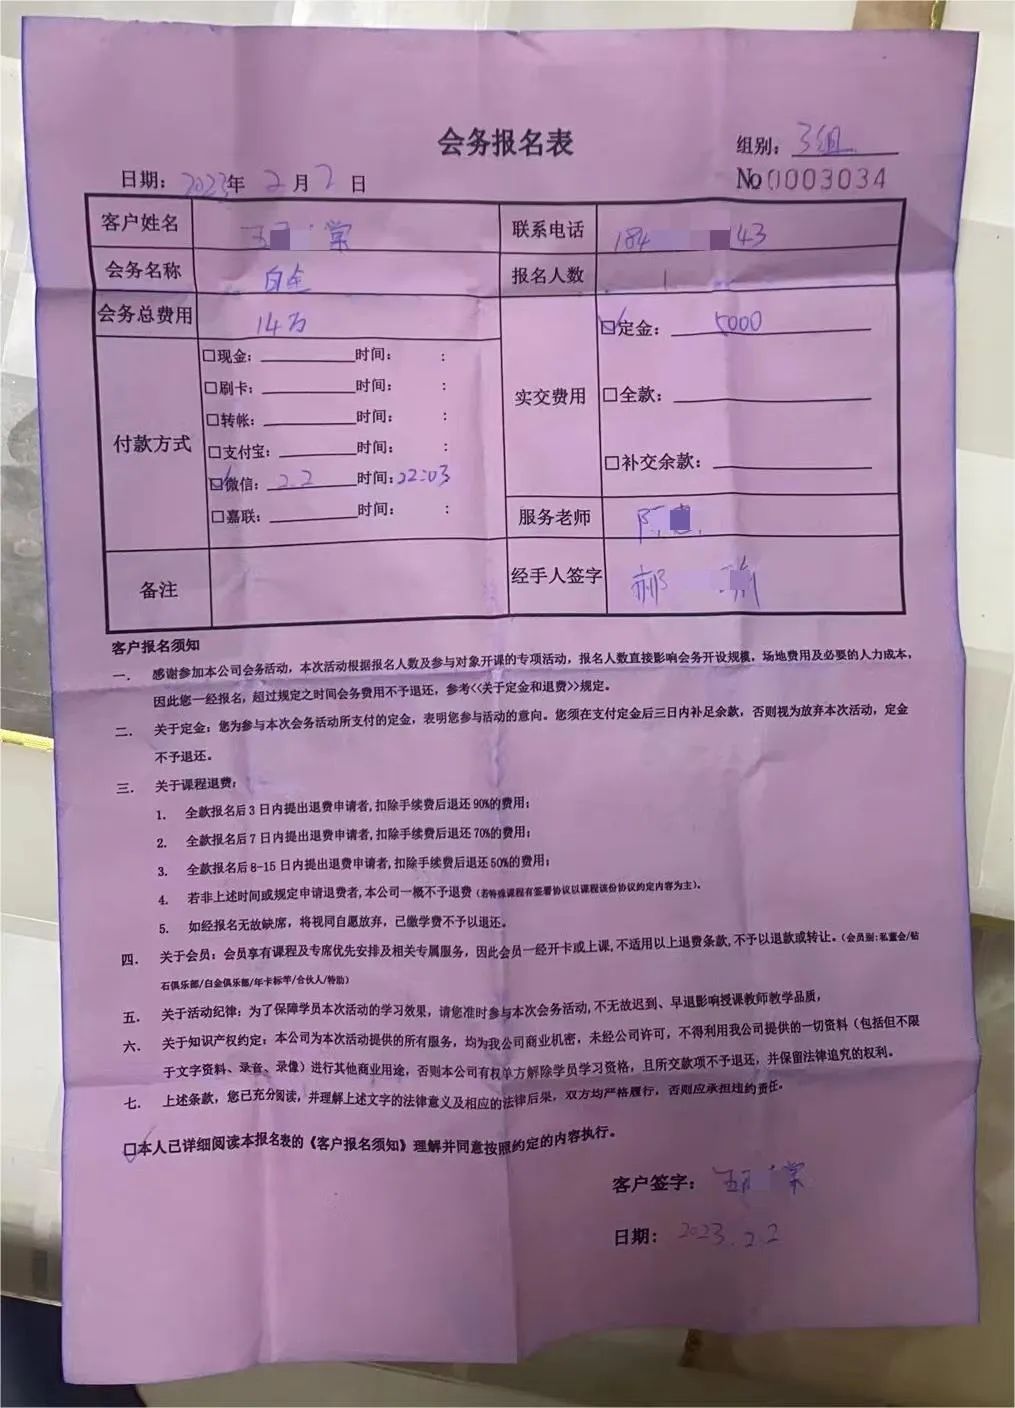 会务报名表
组别: 3组
日期: 2023年 2月 2日
No 0003034
客户姓名 王 棠 联系电话 184 43
会务名称 白金 报名人数 1
会务总费用 14万
付款方式
□现金: 时间: :
□刷卡: 时间: :
□转帐: 时间: :
□支付宝: 时间: :
☑微信: 2.2 时间: 22:03
□嘉联: 时间: :
实交费用
☑定金: 5000
□全款:
□补交余款:
服务老师 陈
备注
经手人签字 郝
客户报名须知
一. 感谢参加本公司会务活动,本次活动根据报名人数及参与对象开课的专项活动,报名人数直接影响会务开设规模,场地费用及必要的人力成本,
因此您一经报名,超过规定之时间会务费用不予退还,参考<<关于定金和退费>>规定。
二. 关于定金:您为参与本次会务活动所支付的定金,表明您参与活动的意向。您须在支付定金后三日内补足余款,否则视为放弃本次活动,定金
不予退还。
三. 关于课程退费:
1. 全款报名后3日内提出退费申请者,扣除手续费后退还90%的费用;
2. 全款报名后7日内提出退费申请者,扣除手续费后退还70%的费用;
3. 全款报名后8-15日内提出退费申请者,扣除手续费后退还50%的费用;
4. 若非上述时间或规定申请退费者,本公司一概不予退费(若特殊课程有签署协议以课程该份协议约定内容为主)。
5. 如经报名无故缺席,将视同自愿放弃,已缴学费不予以退还。
四. 关于会员:会员享有课程及专席优先安排及相关专属服务,因此会员一经开卡或上课,不适用以上退费条款,不予以退款或转让。(会员别:私董会/钻
石俱乐部/白金俱乐部/年卡标竿/合伙人/特助)
五. 关于活动纪律:为了保障学员本次活动的学习效果,请您准时参与本次会务活动,不无故迟到、早退影响授课教师教学品质,
六. 关于知识产权约定:本公司为本次活动提供的所有服务,均为我公司商业机密,未经公司许可,不得利用我公司提供的一切资料(包括但不限
于文字资料、录音、录像)进行其他商业用途,否则本公司有权单方解除学员学习资格,且所交款项不予退还,并保留法律追究的权利。
七. 上述条款,您已充分阅读,并理解上述文字的法律意义及相应的法律后果,双方均严格履行,否则应承担违约责任。
☑本人已详细阅读本报名表的《客户报名须知》理解并同意按照约定的内容执行。
客户签字: 王 棠
日期: 2023.2.2